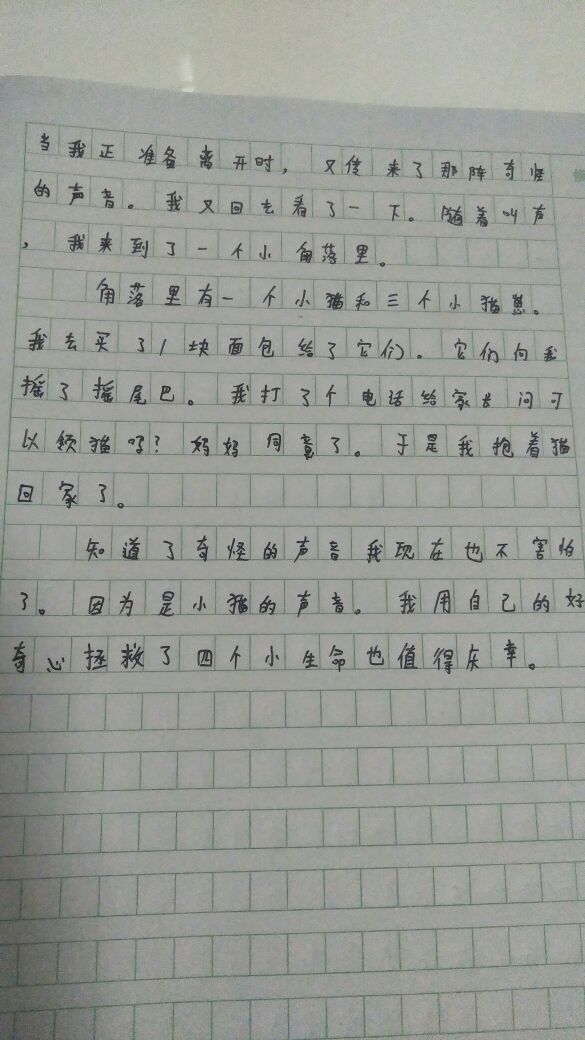 当我正准备离开时，又传来了那阵奇怪
的声音。我又回去看了一下。随着叫声
，我来到了一个小角落里。
角落里有一个小猫和三个小猫崽。
我去买了1块面包给了它们。它们向我
摇了摇尾巴。我打了个电话给家长问可
以领猫吗？妈妈同意了。于是我抱着猫
回家了。
知道了奇怪的声音我现在也不害怕
了。因为是小猫的声音。我用自己的好
奇心拯救了四个小生命也值得庆幸。